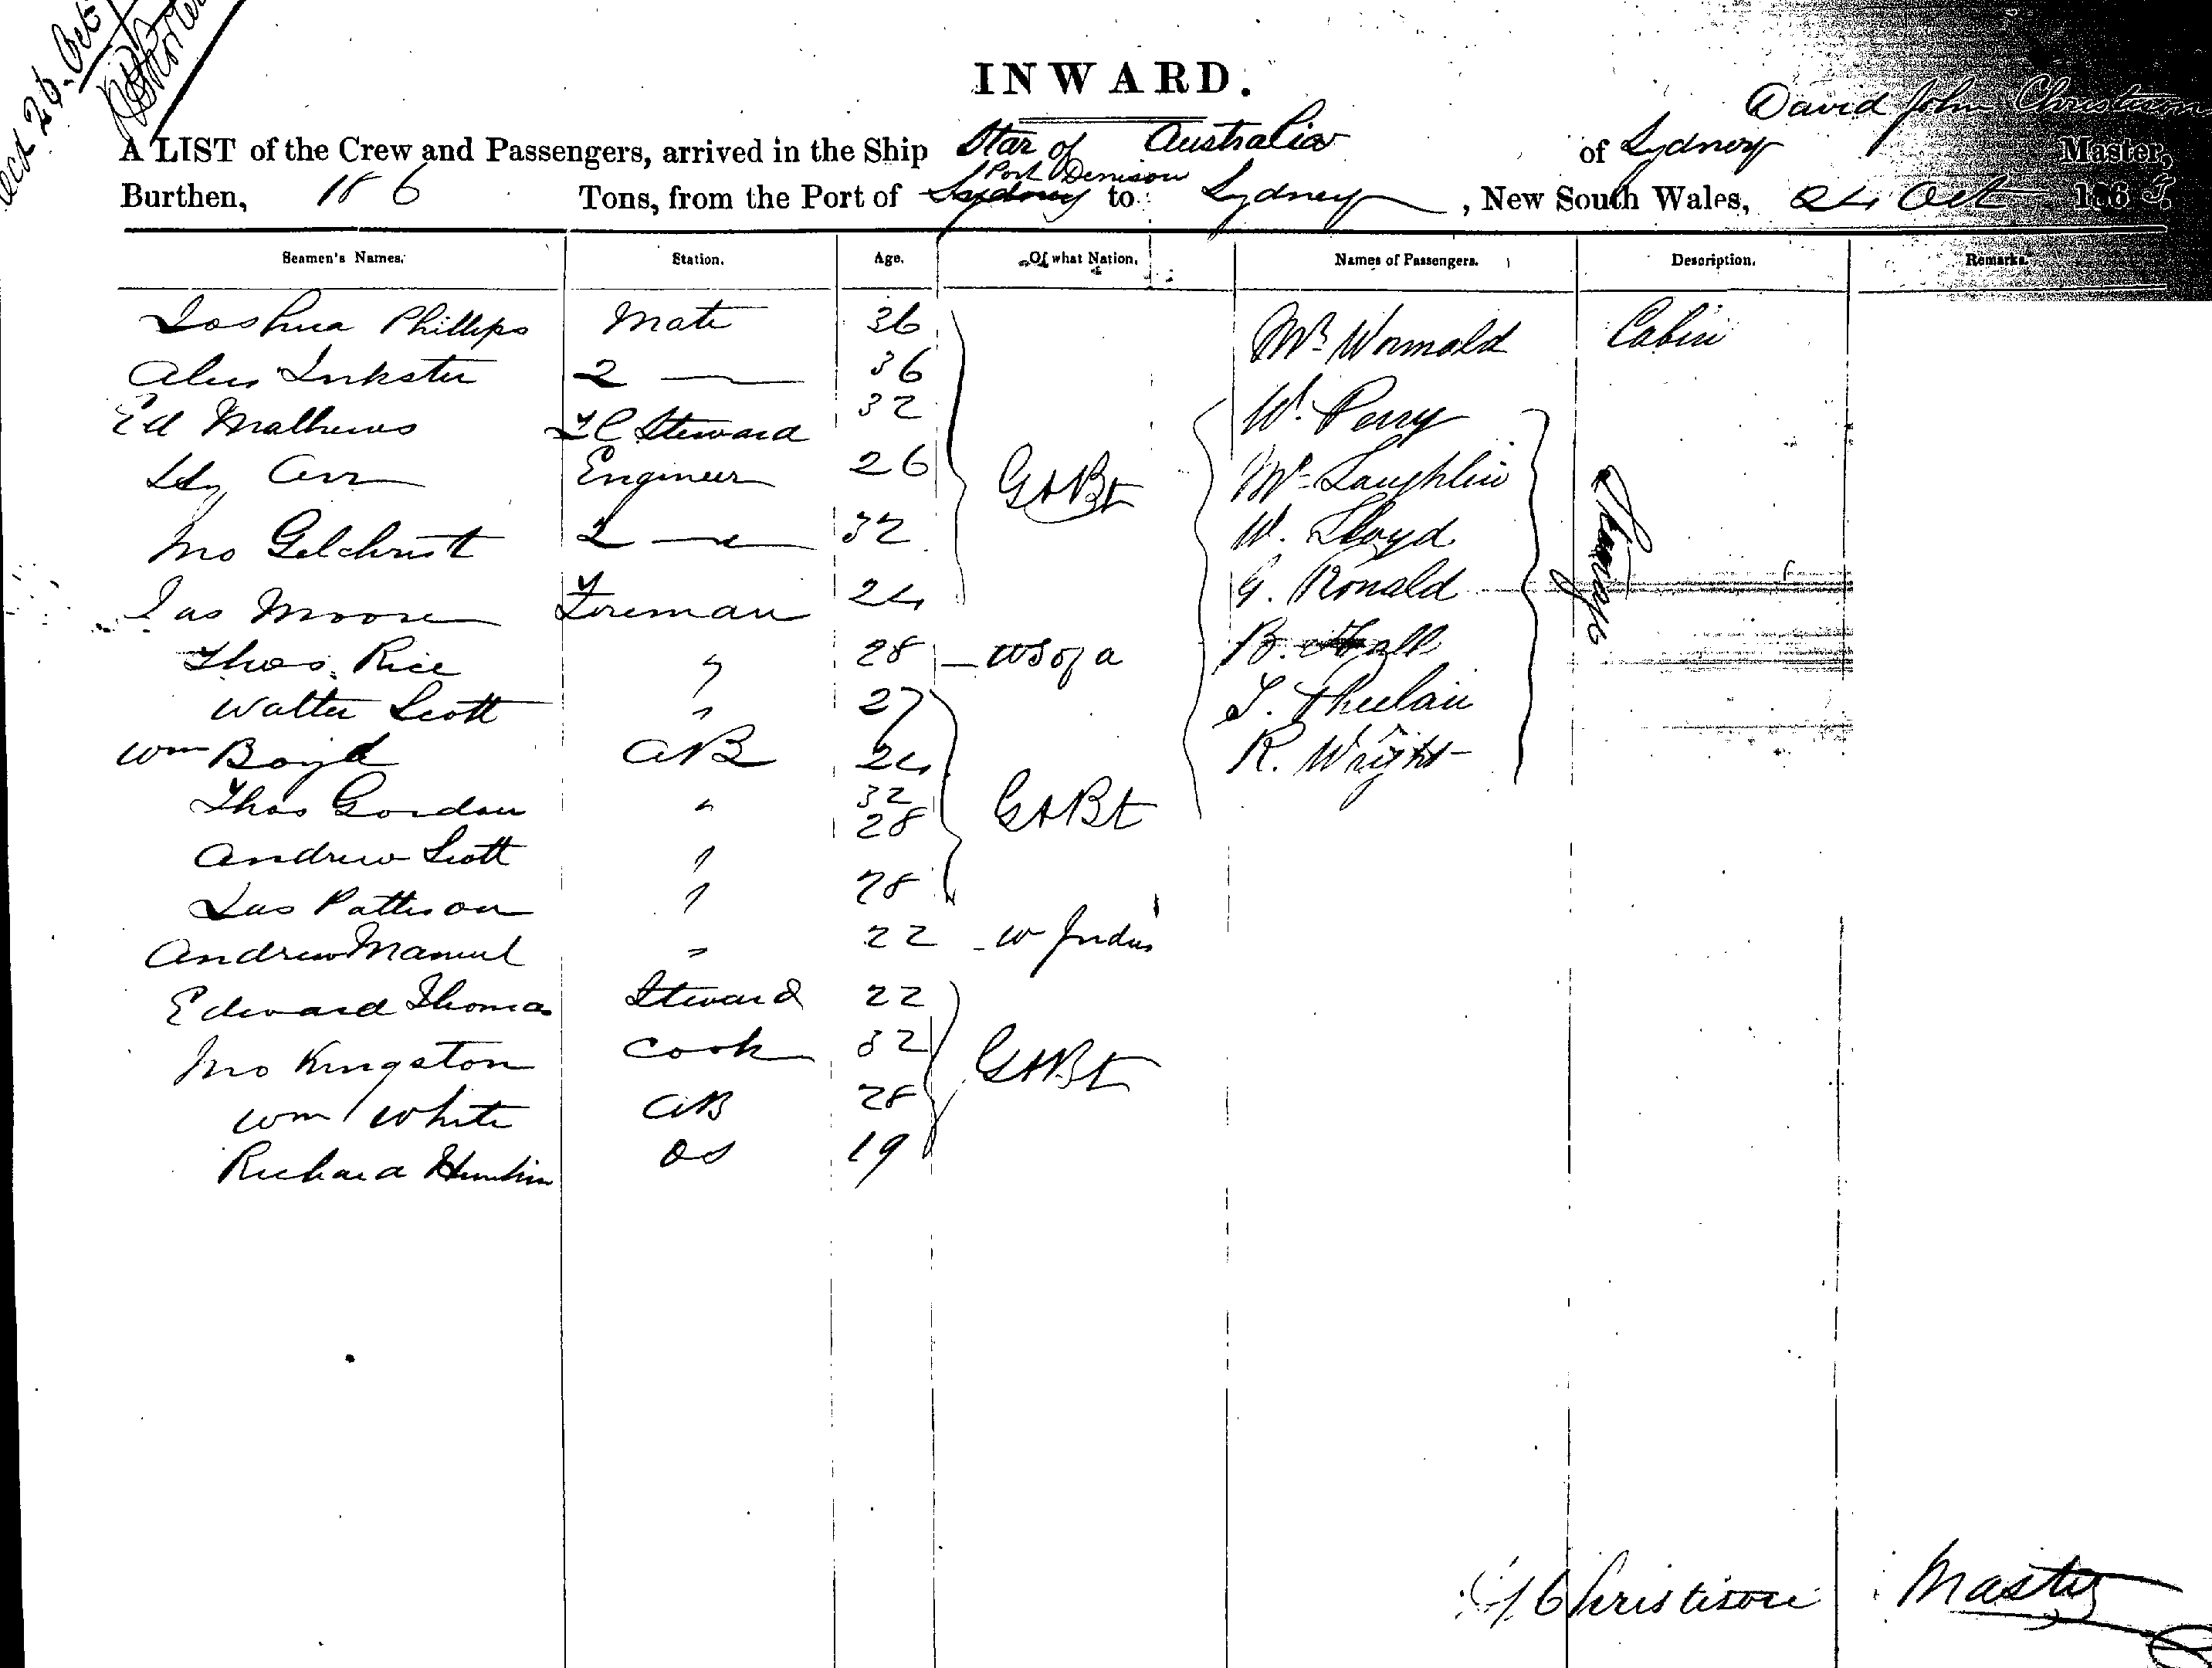 recd 26. Oct
INWARD.
David John Christison
A LIST of the Crew and Passengers, arrived in the Ship Star of Australia of Sydney Master,
Port Denison
Burthen, 186 Tons, from the Port of Sydney to Sydney, New South Wales, 24 Oct 1865.
Seamen's Names. Station. Age. Of what Nation. Names of Passengers. Description. Remarks.
Joshua Phillips Mate 36 Mr Wormald Cabin
Alex Inkster 2 — 36
Ed Mathews FC Steward 32 W. Perry
Hy Engineer 26 Gt Bt Mc Laughlin
Jno Gilchrist 2 — 32 W. Lloyd
Jas Moore Fireman 24 G. Ronald Steerage
Thos. Rice " 28 — US of A B. Hall
Walter Scott " 27 T. Pheelain
Wm Boyd AB 24 R. Wright
Thos Gordon " 32 Gt Bt
28
Andrew Scott "
Jas Pattison " 28
Andrew Manuel " 22 - W Indies
Edward Thomas Steward 22
Jno Kingston Cook 32 Gt Bt
Wm White AB 28
Richard OS 19
Christison Master